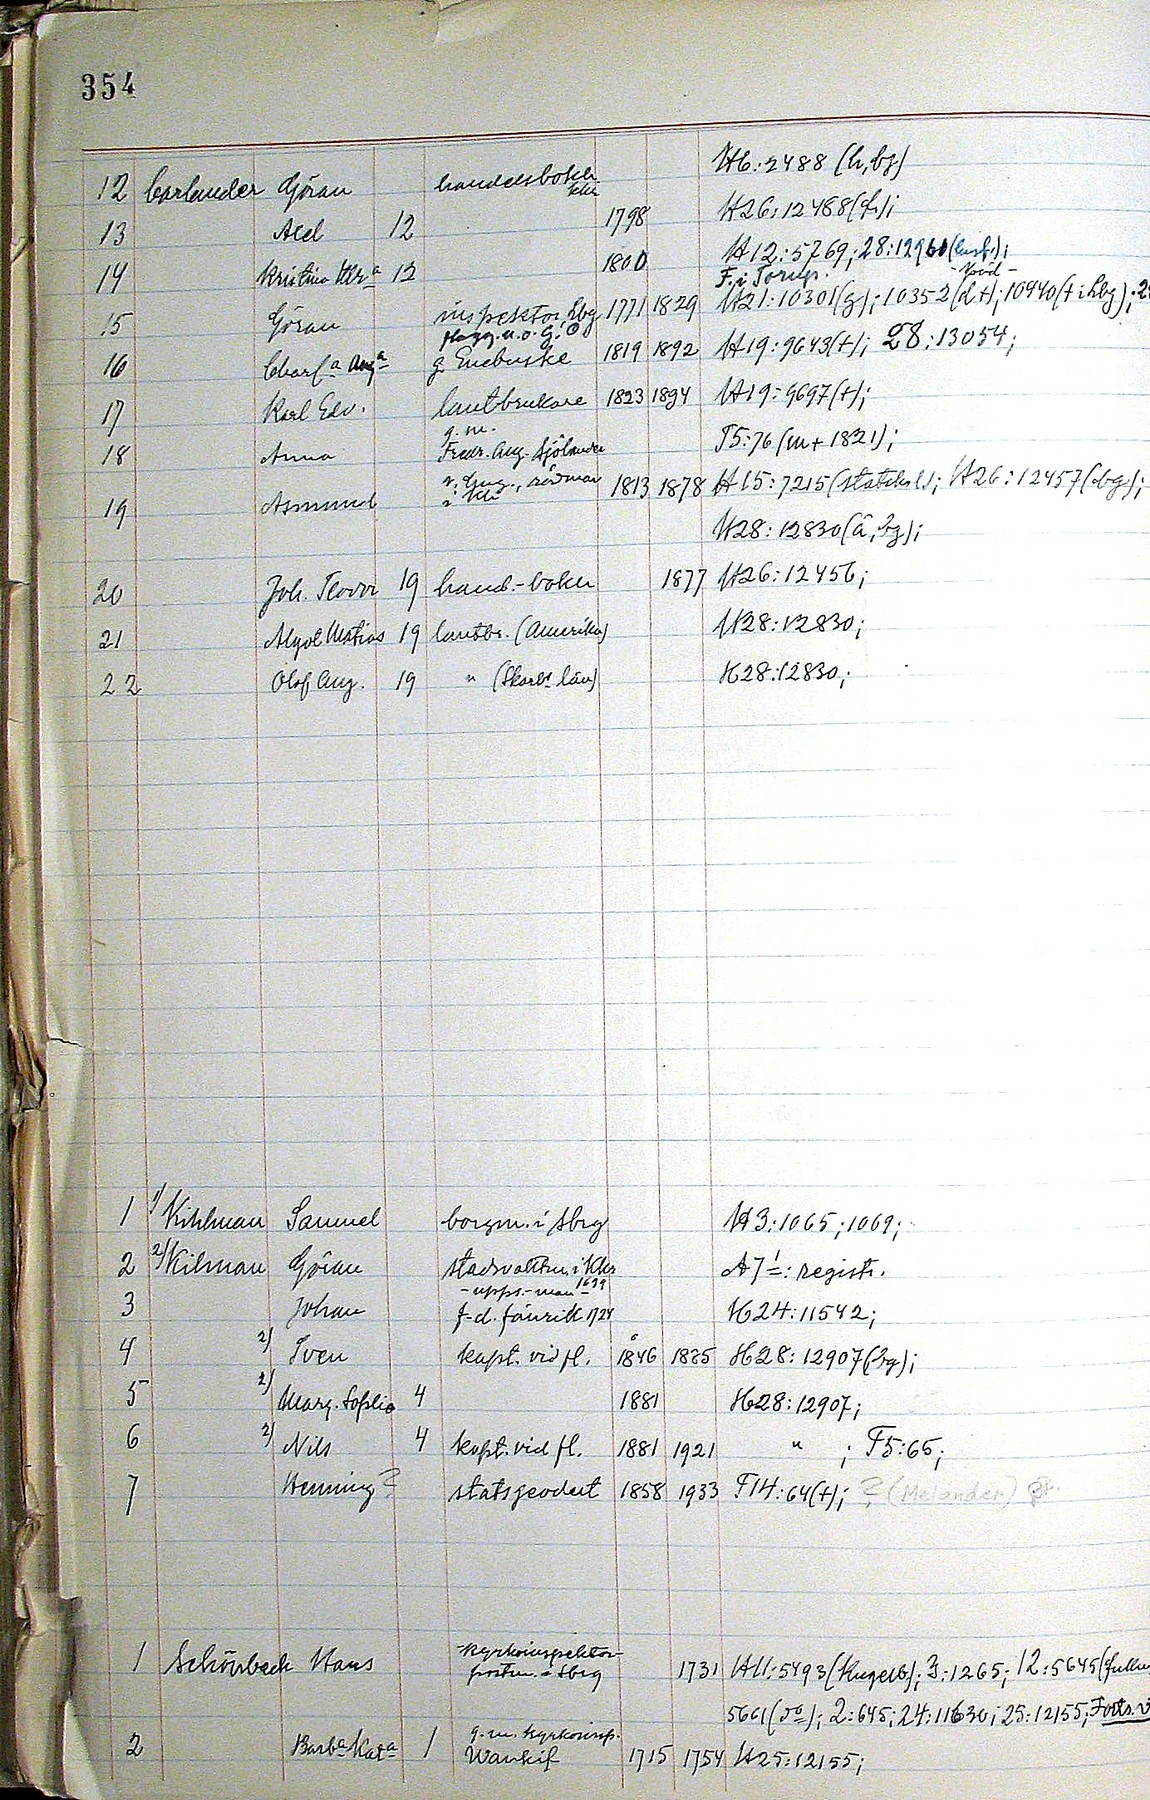 354
12 Carlander Göran handelsbokh. Kkr H6:2488 (h, bg)
13 Axel 12 1798 H26:12488(f);
14 Kristina 12 1800 H12:5769; 28:12960
F. i Torup.
15 Göran inspektor hbg 1771 1829 H21:10301(g); 10352(d+); 10940(+ i hbg);
16 Charl:a Aug:a g. Enebuske 1819 1892 H19:9643(+); 28:13054;
17 Karl Edv. lantbrukare 1823 1894 H19:9697(+);
18 Anna g.m. Fredr. Aug. Sjölander T5:76 (m+ 1821);
19 Asmund rådman i Kkr 1813 1878 H15:7215 H26:12457(bg);
H28:12830(å, bg);
20 Joh. Teodor 19 hand.-bokh. 1877 H26:12456;
21 Algot Matias 19 lantbr. (Amerika) H28:12830;
22 Olof Aug. 19 " (Skarb. län) H28:12830;
1 1) Kihlman Samuel borgm. i Sbrg H3:1065; 1069;
2 2) Kilman Göran stadsvaktm. i Kkr A7 1: registr.
- upps.-man 1699
3 Johan f.d. fänrik 1724 H24:11542;
4 2) Sven kapt. vid fl. 1846 1885 H28:12907(bg);
5 2) Marg. Sofia 4 1881 H28:12907;
6 2) Nils 4 kapt. vid fl. 1881 1921 " ; T5:65;
7 Henning? statsgeodet 1858 1933 T14:64(+); ? (Melander)
1 Schönbeck Hans kyrkoinspektor postm. i Sbrg 1731 H11:5493(Kugelb); 3:1265; 12:5645
5661(do); 2:645; 24:11630; 25:12155; Forts. v
2 Barb:a Kat:a 1 g.m. kyrkoinsp. Wankif 1715 1754 H25:12155;